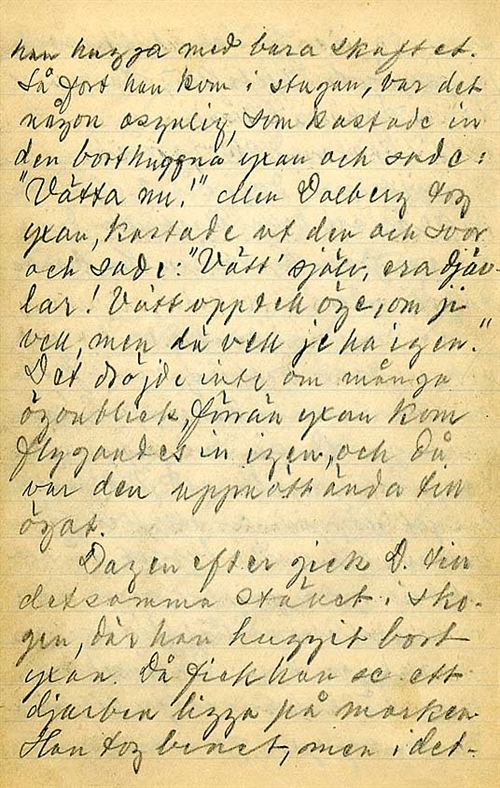 han hugga med bara skaftet.
Så fort han kom i stugan, var det
någon osynlig, som kastade in
den borthuggna yxan och sade:
"Vätta nu!" Men Dalberg tog
yxan, kastade ut den och svor
och sade: "Vätt' själv, era djäv-
lar! Vätt opp tell öge, om ji
vell, men då vell je ha igen."
Det dröjde inte om många
ögonblick, förrän yxan kom
flygandes in igen, och då
var den uppnött ända till
ögat.
Dagen efter gick D. till
detsamma stället i sko-
gen, där han huggit bort
yxan. Då fick han se ett
djurben ligga på marken.
Han tog benet, men i det-